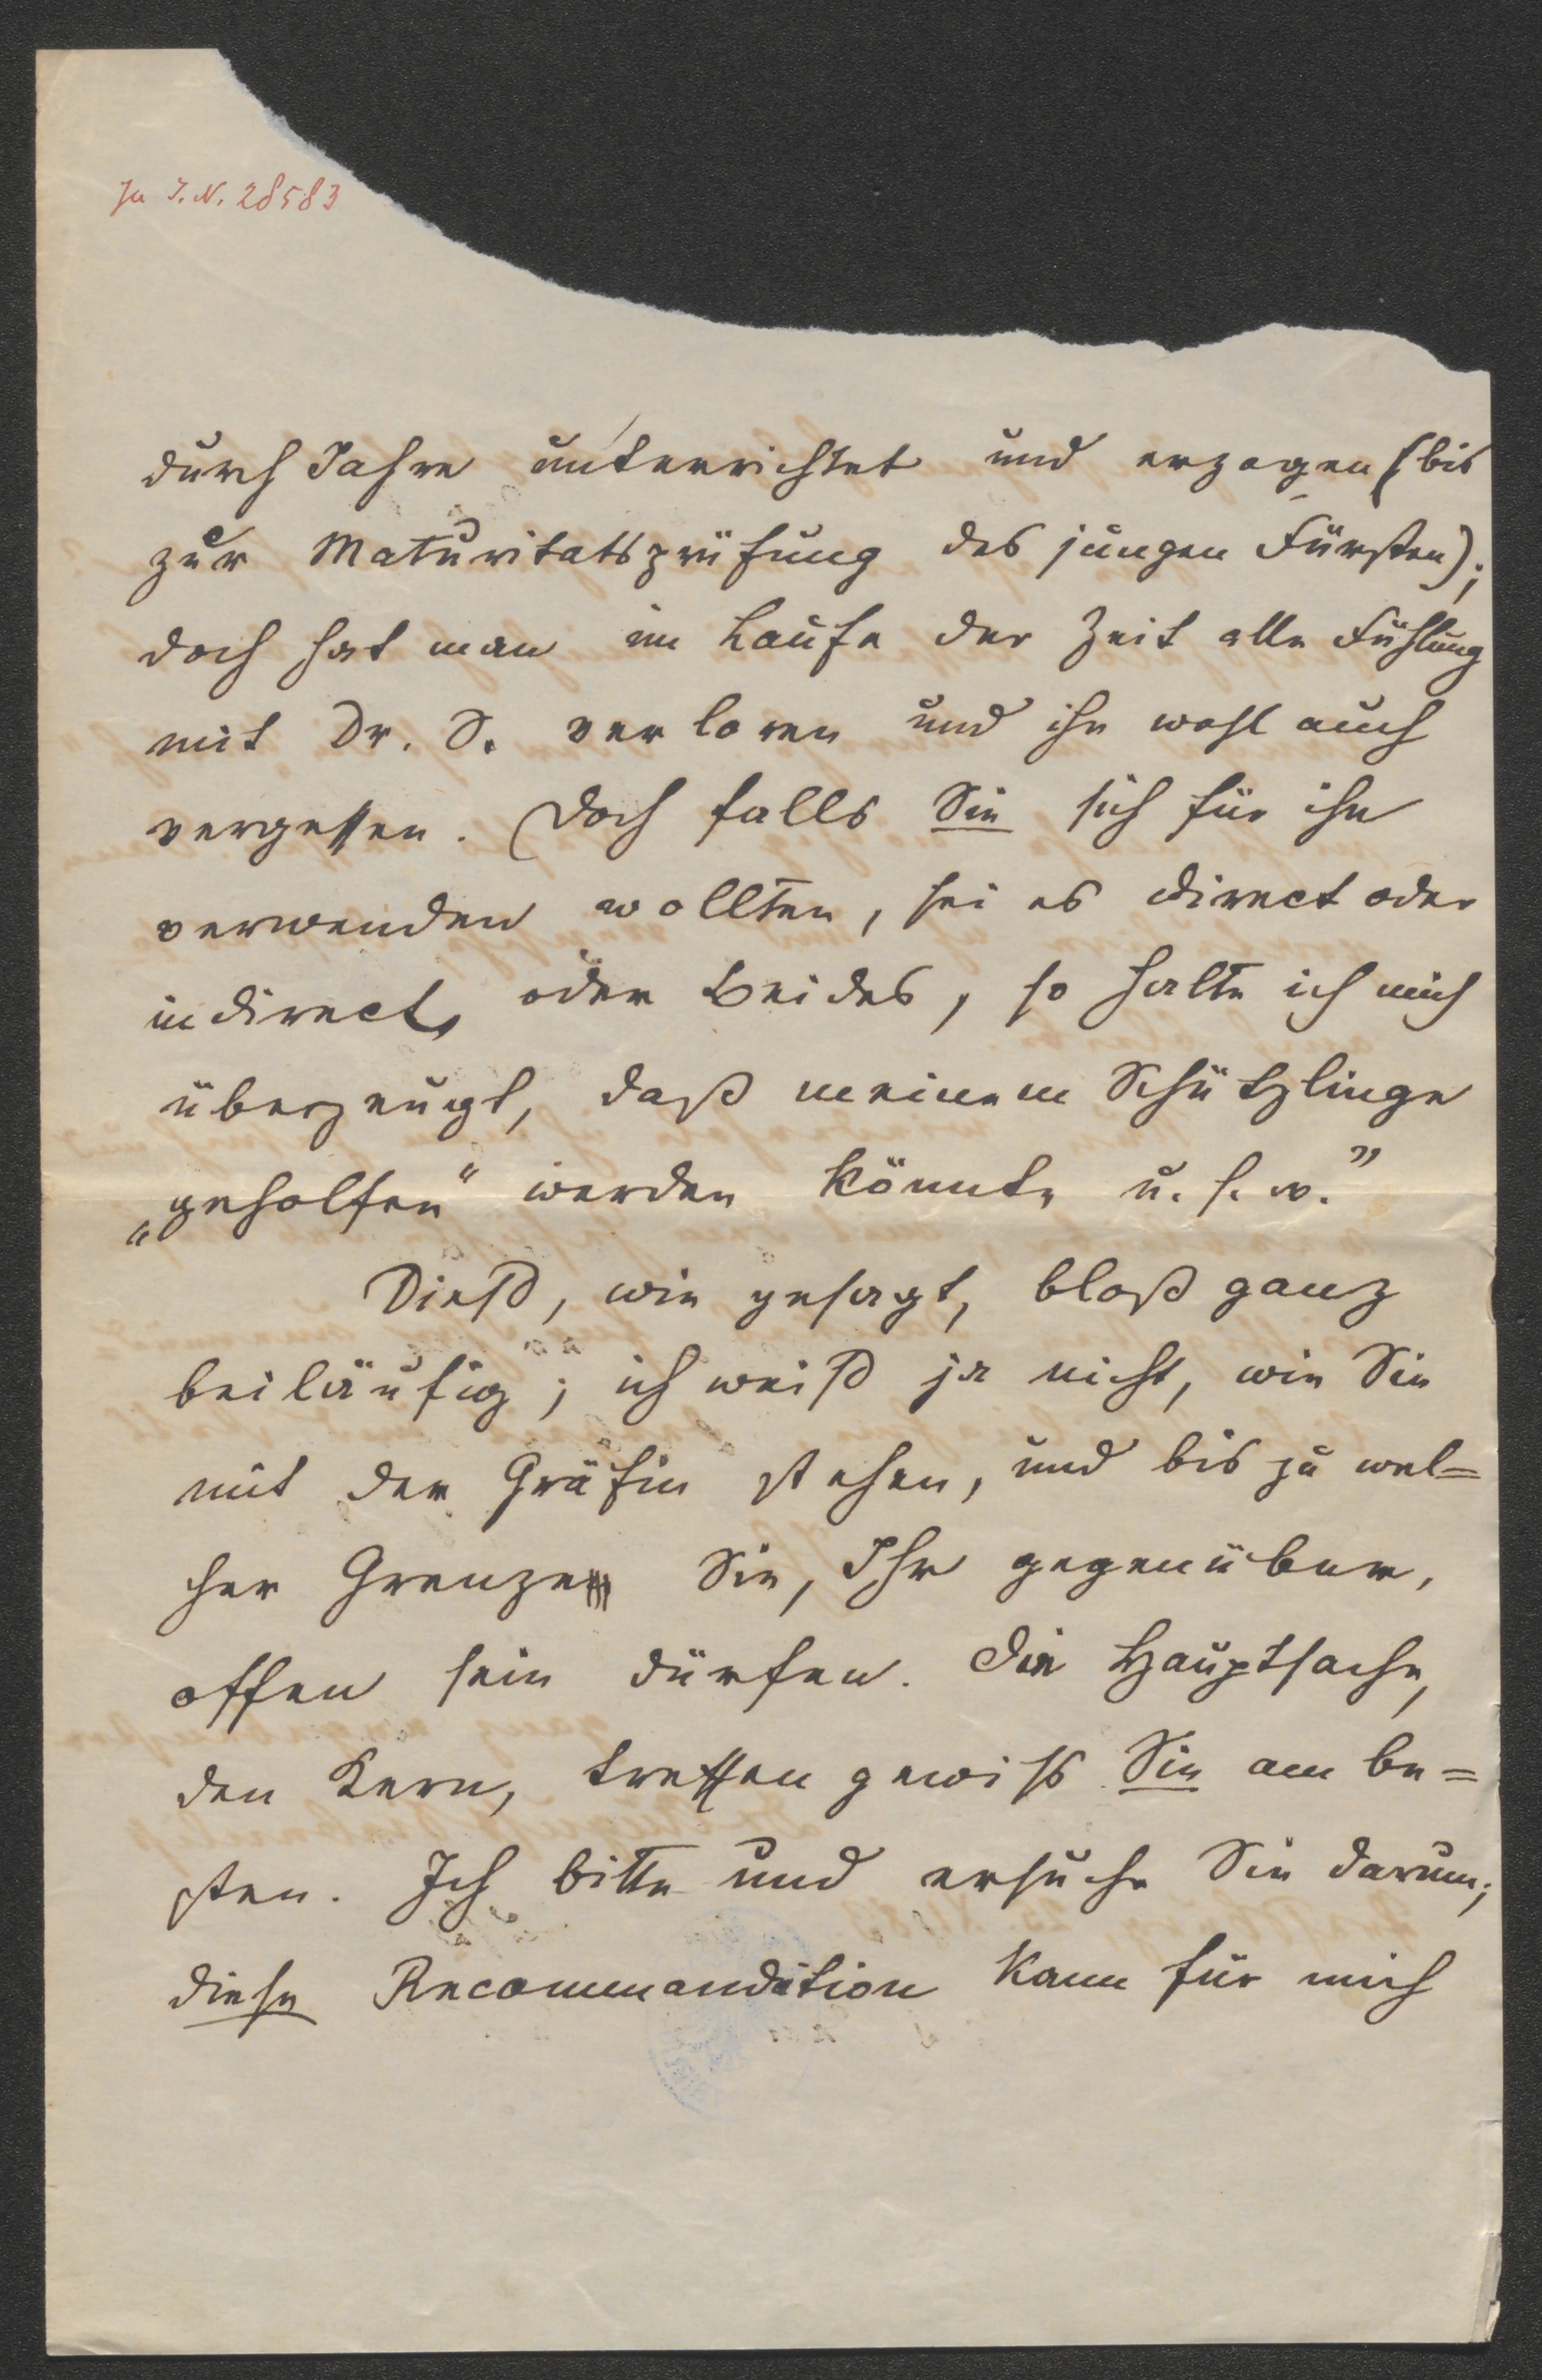 Zu I.N. 28583
durch Jahre unterrichtet und erzogen (bis
zur Maturitätsprüfung des jungen Fürsten);
doch hat man im Laufe der Zeit alle Fühlung
mit Dr. S. verloren und ihn wohl auch
vergessen. Doch falls Sie sich für ihn
verwenden wollten, sei es direct oder
indirect, oder beides, so halte ich mich
überzeugt, daß meinem Schützlinge
„geholfen“ werden könnte u. s. w.”
Dieß, wie gesagt, bloß ganz
beiläufig; ich weiß ja nicht, wie Sie
mit der Gräfin stehen, und bis zu wel=
cher Grenze Sie, Ihr gegenüber,
offen sein dürfen. Die Hauptsache,
den Kern, treffen gewiß Sie am be=
sten. Ich bitte und ersuche Sie darum;
diese Recommandation kann für mich